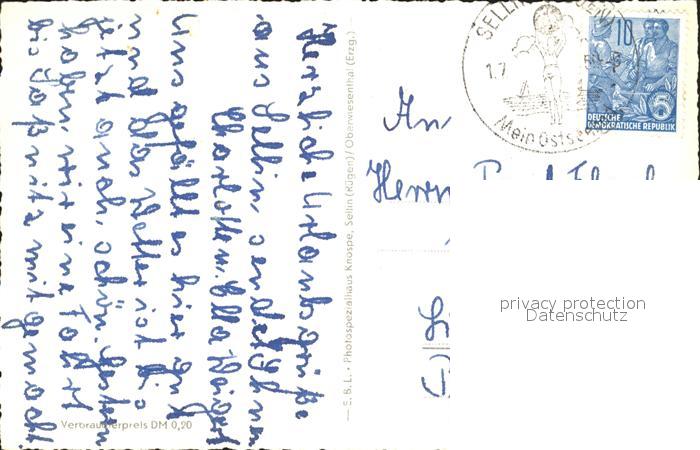 Herzliche Urlaubsgrüße
aus Sellin, sendet Ihnen
Charlotte u. Ella Weigert
Uns gefällt es hier gut
und das Wetter ist bis
jetzt auch, schön. Gestern
haben, wir eine Fahrt
bis Saßnitz mitgemacht
Verbraucherpreis DM 0,20
S. B. L. • Photospezialhaus Knospe, Sellin (Rügen) / Oberwiesenthal (Erzg.)
An
Herrn
SELLIN
1.7
Mein Ostsee
10
DEUTSCHE
DEMOKRATISCHE REPUBLIK
privacy protection
Datenschutz